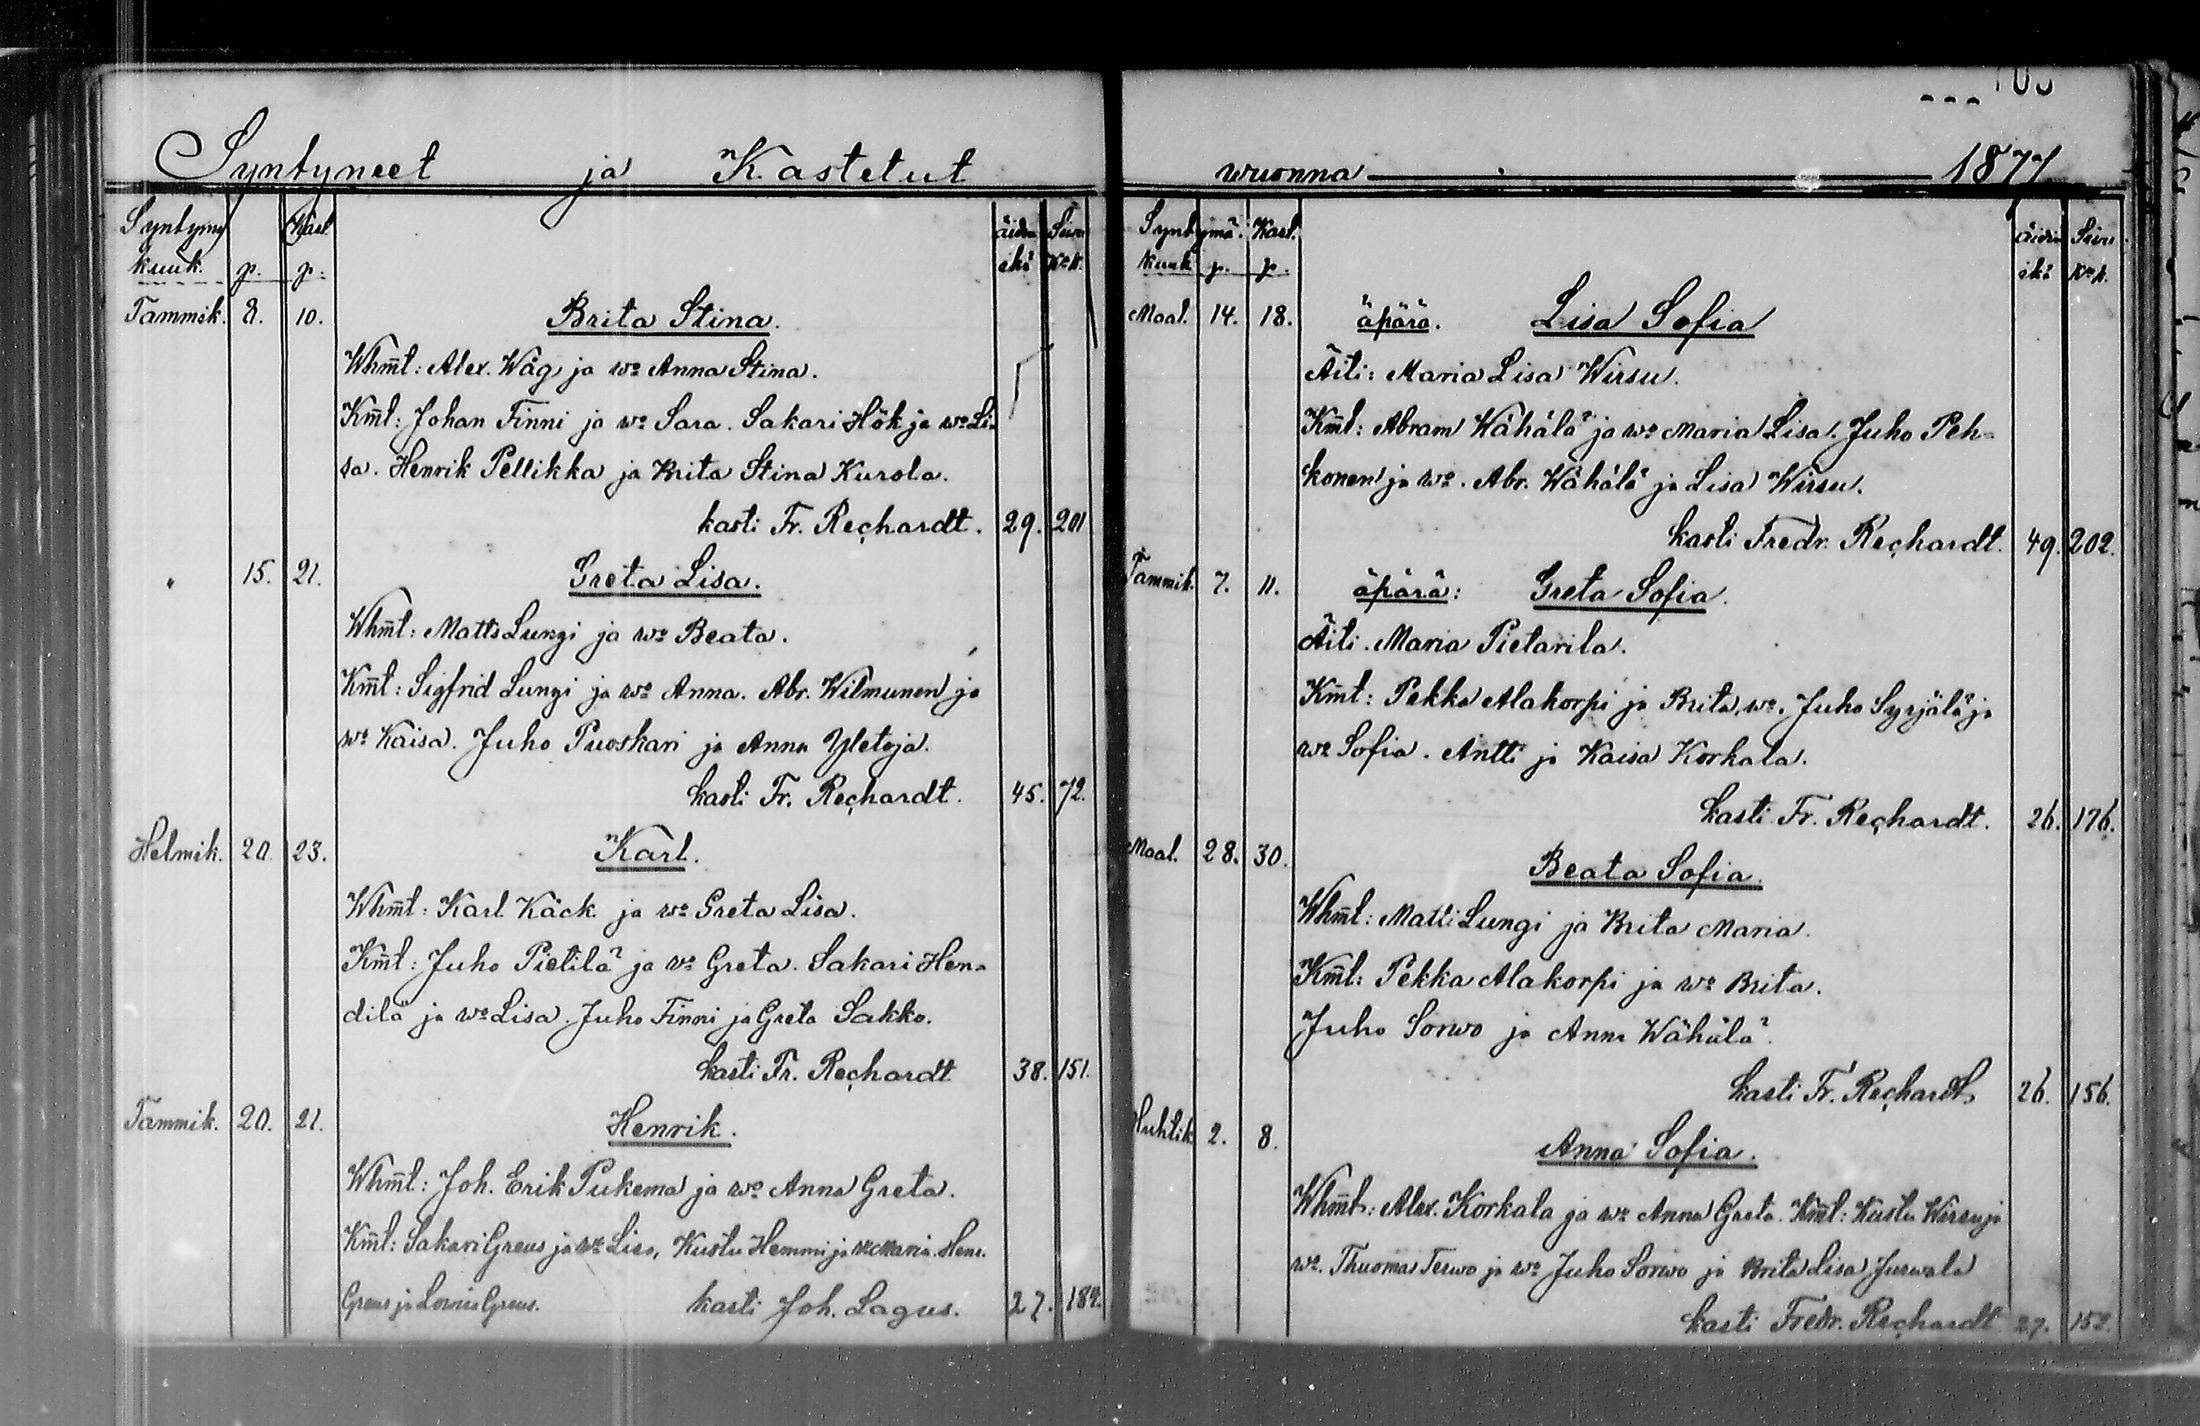 Syntyneet ja Kastetut
Syntymä Kast. äidin Siwu
kuuk. p. p. ikä No K.
Tammik. 8. 10. Brita Stina.
Whm̄t: Alex. Wäg ja wo Anna Stina.
Km̄t: Johan Finni ja wo Sara. Sakari Hök ja wo Li-
sa. Henrik Pellikka ja Brita Stina Kurola.
kasti Fr. Rechardt. 29. 201
" 15. 21. Greta Lisa.
Whm̄t: Matts Lungi ja wo Beata.
Km̄t: Sigfrid Lungi ja wo Anna. Abr. Wilmunen ja
wo Kaisa. Juho Puoskari ja Anna Yletoja.
kasti Fr. Rechardt. 45. 72.
Helmik. 20. 23. Karl.
Whm̄t: Karl Käck ja wo Greta Lisa.
Km̄t: Juho Pietilä ja wo Greta. Sakari Hen-
dilä ja wo Lisa. Juho Finni ja Greta Sakko.
kasti Fr. Rechardt 38. 151.
Tammik. 20. 21. Henrik.
Whm̄t: Joh. Erik Pukema ja wo Anna Greta.
Km̄t: Sakari Greus ja wo Lisa, Kustu Hemmi ja wo Maria. Henr.
Greus ja Lovisa Greus. kasti Joh. Lagus. 27. 184.
wuonna 1877
Syntymä. Kast. äidin Siwu
kuuk p. p. ikä No K.
Maal. 14. 18. äpärä. Lisa Sofia
Äiti: Maria Lisa Wirsu.
Km̄t: Abram Wähälä ja wo Maria Lisa. Juho Peh-
konen ja wo. Abr. Wähälä ja Lisa Wirsu.
kasti Fredr. Rechardt. 49. 202.
Tammik. 7. 11. äpärä: Greta Sofia.
Äiti. Maria Pietarila.
Km̄t: Pekka Alakorpi ja Brita, wo. Juho Syrjälä ja
wo Sofia. Antti ja Kaisa Korkala.
kasti Fr. Rechardt. 26. 176.
Maal. 28. 30. Beata Sofia.
Whm̄t: Matti Lungi ja Brita Maria.
Km̄t: Pekka Alakorpi ja wo Brita.
Juho Sorwo ja Anna Wähälä.
kasti Fr. Rechardt. 26. 156.
Huhtik. 2. 8. Anna Sofia.
Whm̄t: Alex. Korkala ja wo Anna Greta. Km̄t: Kustu Wirsu ja
wo. Thuomas Terwo ja wo Juho Sorwo ja Brita Lisa Jurwala
kasti Fredr. Rechardt 27. 152.